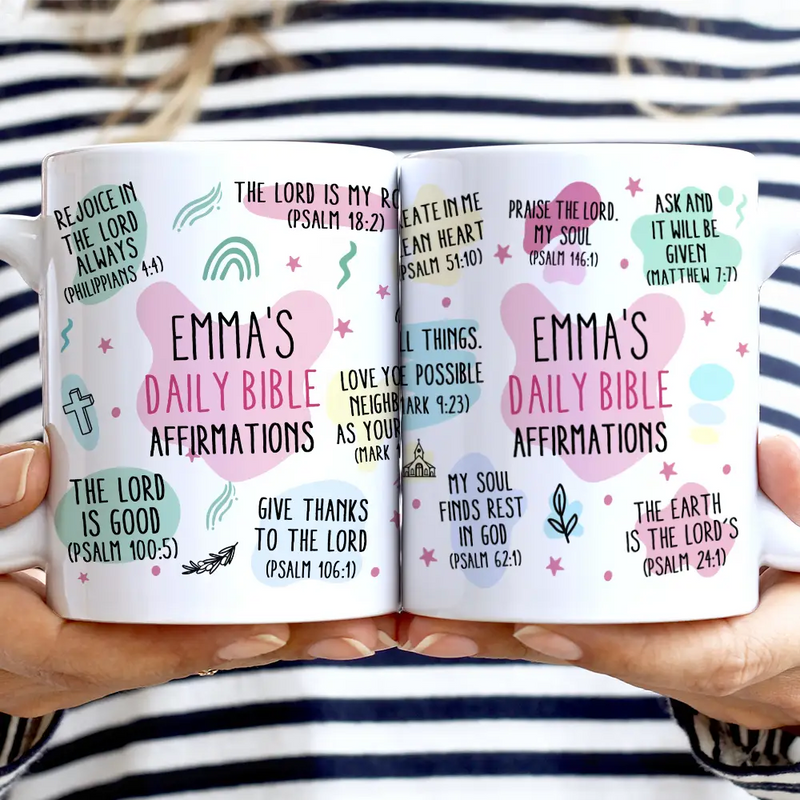 REJOICE IN
THE LORD
ALWAYS
(PHILIPPIANS 4:4)
THE LORD IS MY RO
(PSALM 18:2)
EMMA'S
DAILY BIBLE
AFFIRMATIONS
LOVE YO
NEIGHB
AS YOUR
(MARK
THE LORD
IS GOOD
(PSALM 100:5)
GIVE THANKS
TO THE LORD
(PSALM 106:1)
EATE IN ME
EAN HEART
PSALM 51:10)
PRAISE THE LORD.
MY SOUL
(PSALM 146:1)
ASK AND
IT WILL BE
GIVEN
(MATTHEW 7:7)
LL THINGS.
E POSSIBLE
ARK 9:23)
EMMA'S
DAILY BIBLE
AFFIRMATIONS
MY SOUL
FINDS REST
IN GOD
(PSALM 62:1)
THE EARTH
IS THE LORD'S
(PSALM 24:1)